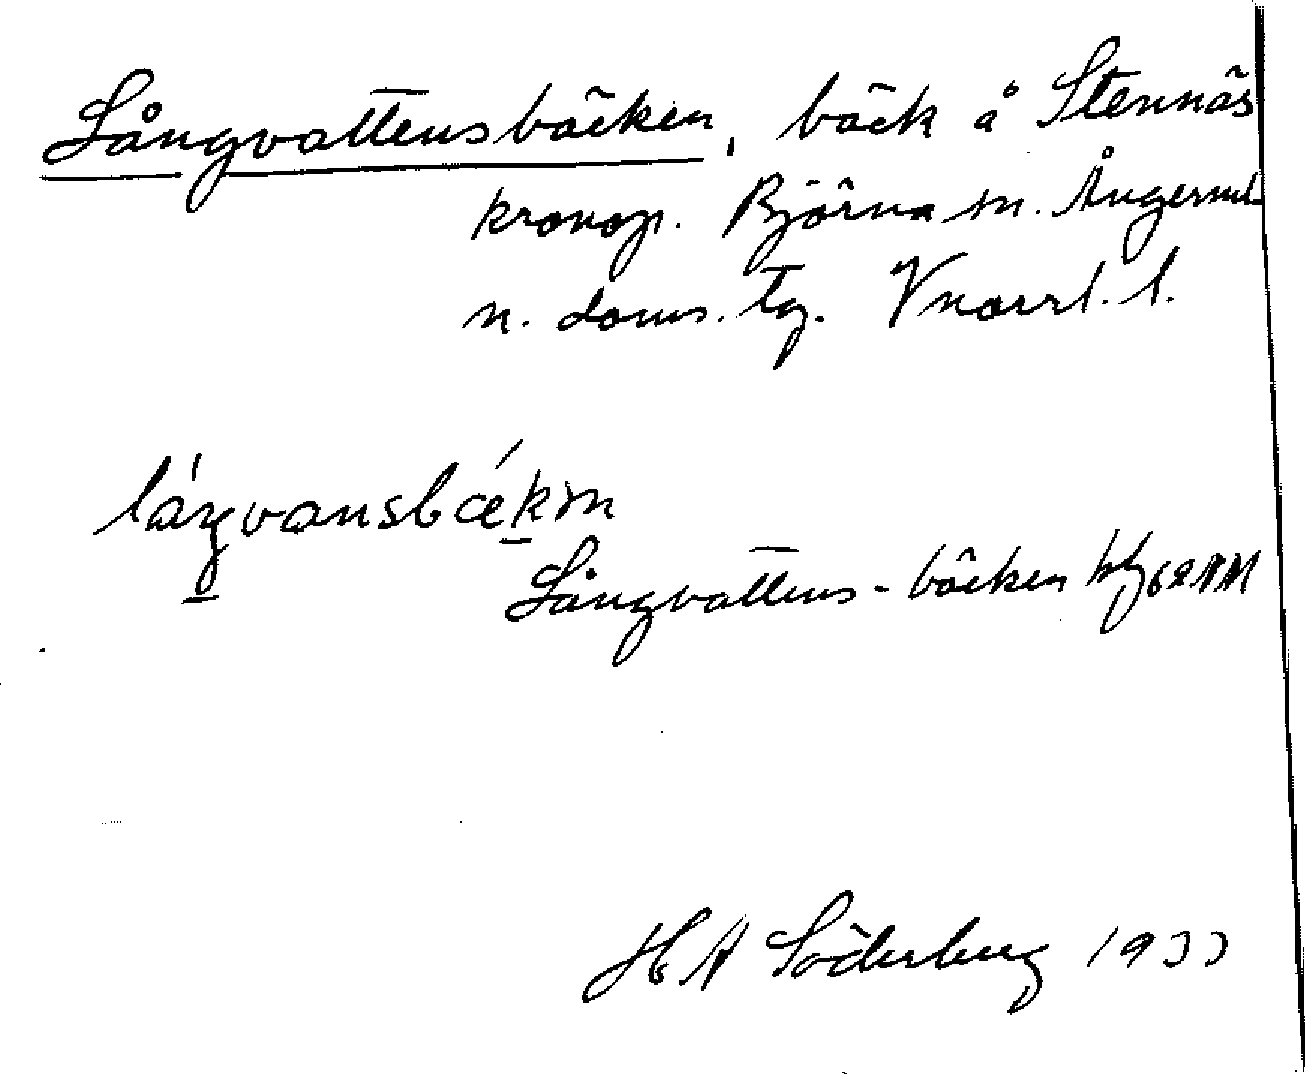 Långvattensbäcken, bäck å Stennäs
kronop. Björna sn. Ångerml.
n. doms. tg. Vnorrl. l.
Långvattens-bäcken 62 NM
H A Söderberg 1933